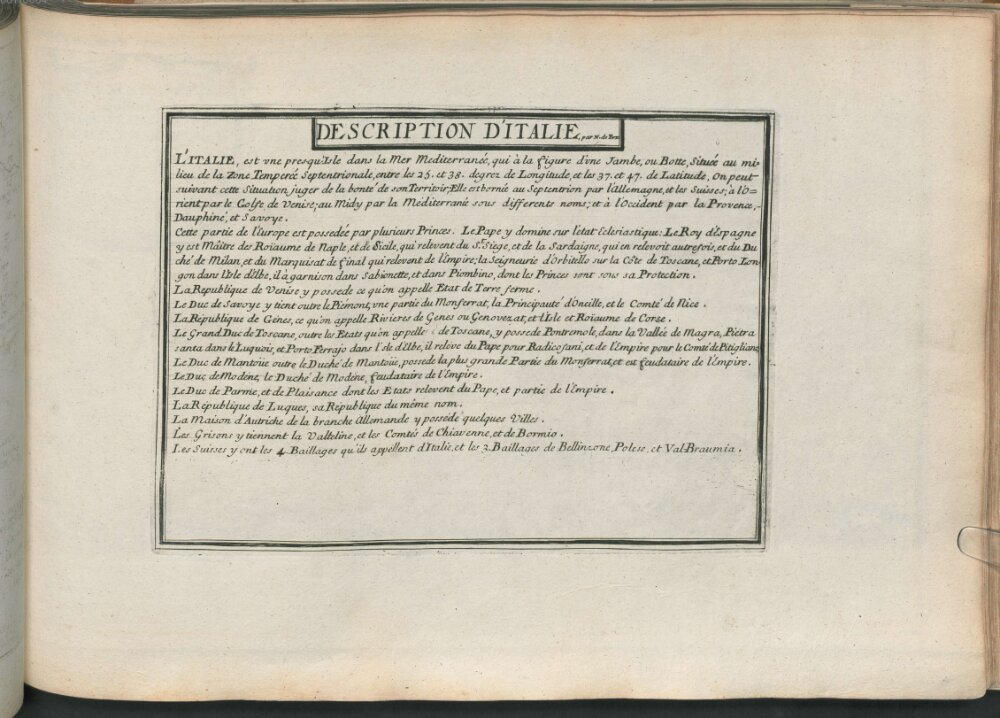 DESCRIPTION D'ITALIE, par N. de Fer.
L'ITALIE, est vne presqu'Isle dans la Mer Mediterraneé, qui à la figure d'vne Jambe, ou Botte, Située au mi-
lieu de la Zone Temperée Septentrionale, entre les 25. et 38. degrez de Longitude, et les 37. et 47. de Latitude, On peut
suivant cette Situation, juger de la bonté de son Territoir; Elle est bornée au Septentrion par l'allemagne, et les Suisses; à l'O-
rient par le Golfe de Venise; au Midy par la Méditerranie sous differents noms; et à l'Occident par la Provence,
Dauphiné, et Savoye.
Cette partie de l'Europe est possedée par plusieurs Princes. Le Pape y domine sur l'etat Eclesiastique: Le Roy d'Espagne
y est Maître des Roiaume de Naple, et de Sicile, qui relevent du St. Siege, et de la Sardaigne, qui en relevoit autrefois, et du Du
ché de Milan, et du Marquisat de final qui relevent de l'Empire; la Seigneurie d'Orbitello sur la Côte de Toscane, et Porto Lon
gon dans l'Isle d'Elbe, il à garnison dans Sabionette, et dans Piombino, dont les Princes sont sous sa Protection.
La Republique de Venise y possede ce qu'on appelle Etat de Terre ferme.
Le Duc de Savoye y tient outre le Piémont, vne partie du Monferrat, la Principauté d'Oneille, et le Comté de Nice.
La République de Gènes, ce qu'on appelle Rivieres de Genes ou Genovezat, et l'Isle et Roiaume de Corse.
Le Grand Duc de Toscane, outre les Etats qu'on appelle de Toscane, y possede Pontremole, dans la Vallée de Magra, Piétra
santa dans le Luquois, et Porto Ferrajo dans l'isle d'Elbe, il relève du Pape pour Radicofani, et de l'Empire pour le Comté de Pitigliano
Le Duc de Mantoüe outre le Duché de Mantoüe, possede la plus grande Partie du Monferrat, et est feudataire de l'Empire.
Le Duc de Modène, le Duché de Modène, feudataire de l'Empire.
Le Duc de Parme, et de Plaisance dont les Etats relevent du Pape, et partie de l'Empire.
La République de Luques, sa République du même nom.
La Maison d'Autriche de la branche Allemande y possede quelques Villes.
Les Grisons y tiennent la Valteline, et les Comtés de Chiavenne, et de Bormio.
Les Suisses y ont les 4. Baillages qu'ils appellent d'Italie, et les 3. Baillages de Bellinzone, Polese, et Val-Braumia.